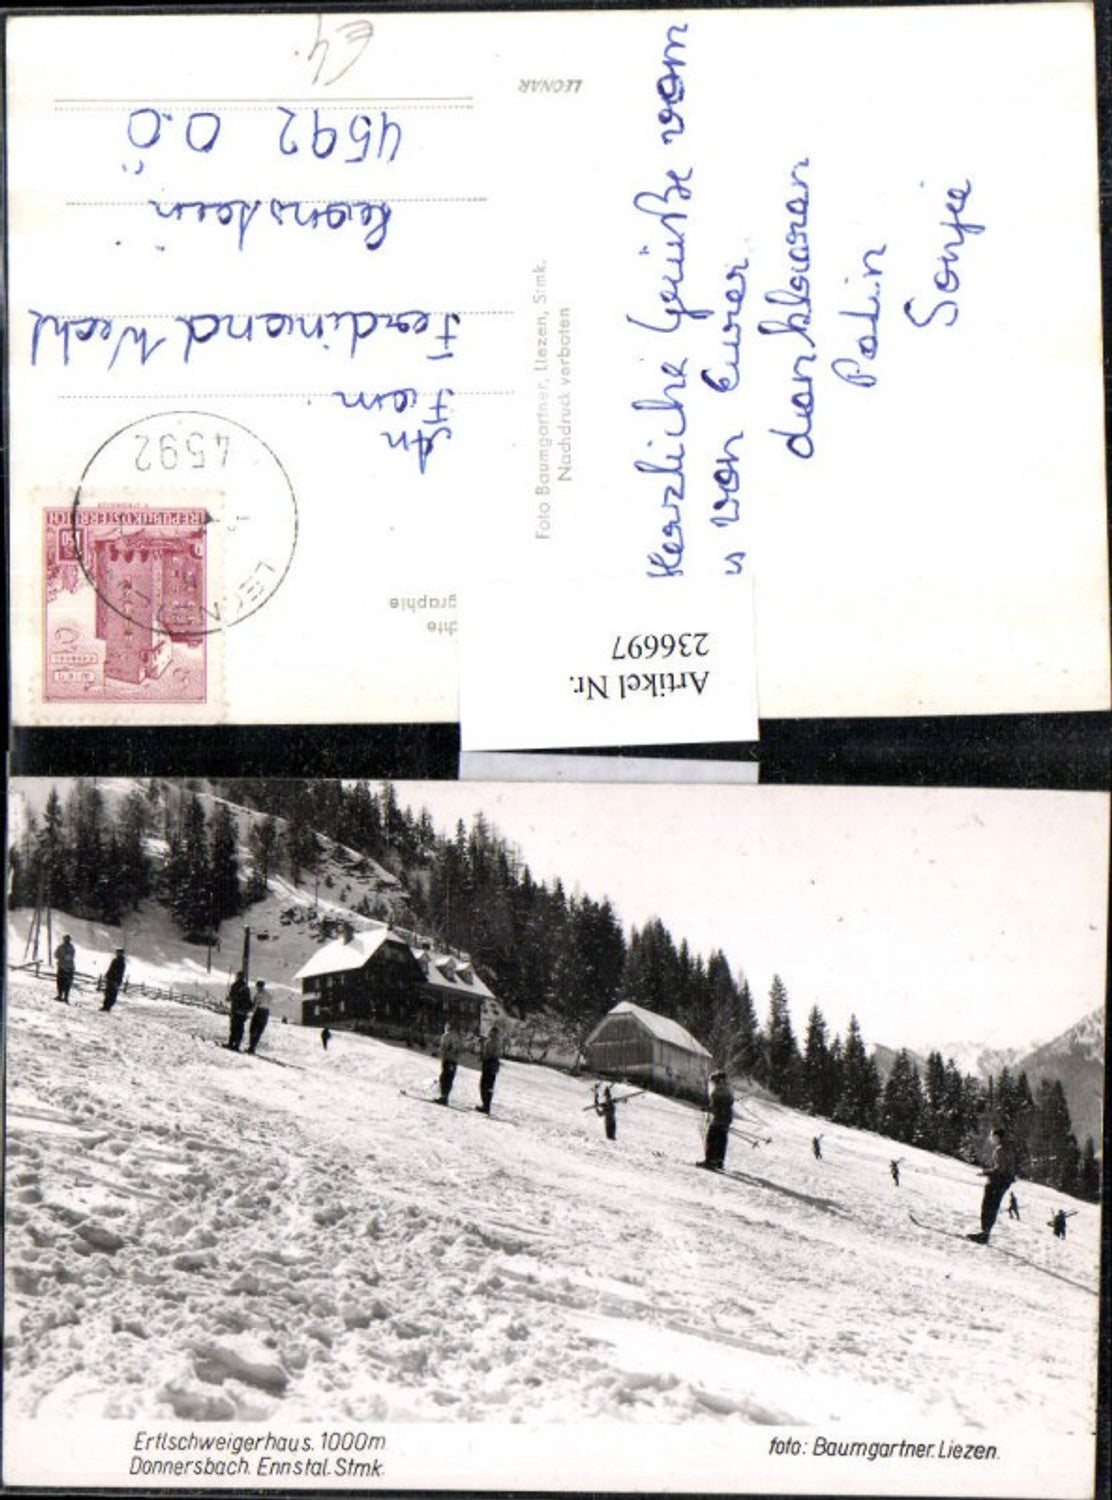 Herzliche Grüße vom
u von Eurer
dankbaren
Patin
Sonja
LEONAR
Foto Baumgartner, Liezen, Stmk.
Nachdruck verboten
An
Fam.
Ferdinand
Leonstein
4592 O.Ö
4592
REPUBLIK ÖSTERREICH
chte
graphie
Artikel Nr.
236697
Ertlschweigerhaus. 1000m
Donnersbach. Ennstal. Stmk.
foto: Baumgartner. Liezen.